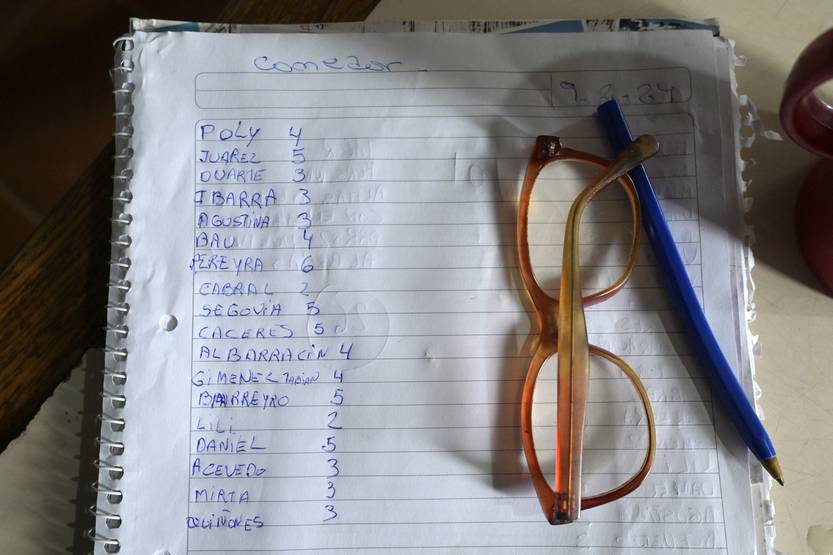 Comedor
9-2-24
POLY 4
JUAREZ 5
DUARTE 3
IBARRA 3
AGUSTINA 3
BAU 4
PEREYRA 6
CABRAL 2
SEGOVIA 5
CACERES 5
ALBARRACIN 4
GIMENEZ FABIAN 4
BARREYRO 5
LILI 2
DANIEL 5
ACEVEDO 3
MIRTA 3
QUIÑONES 3